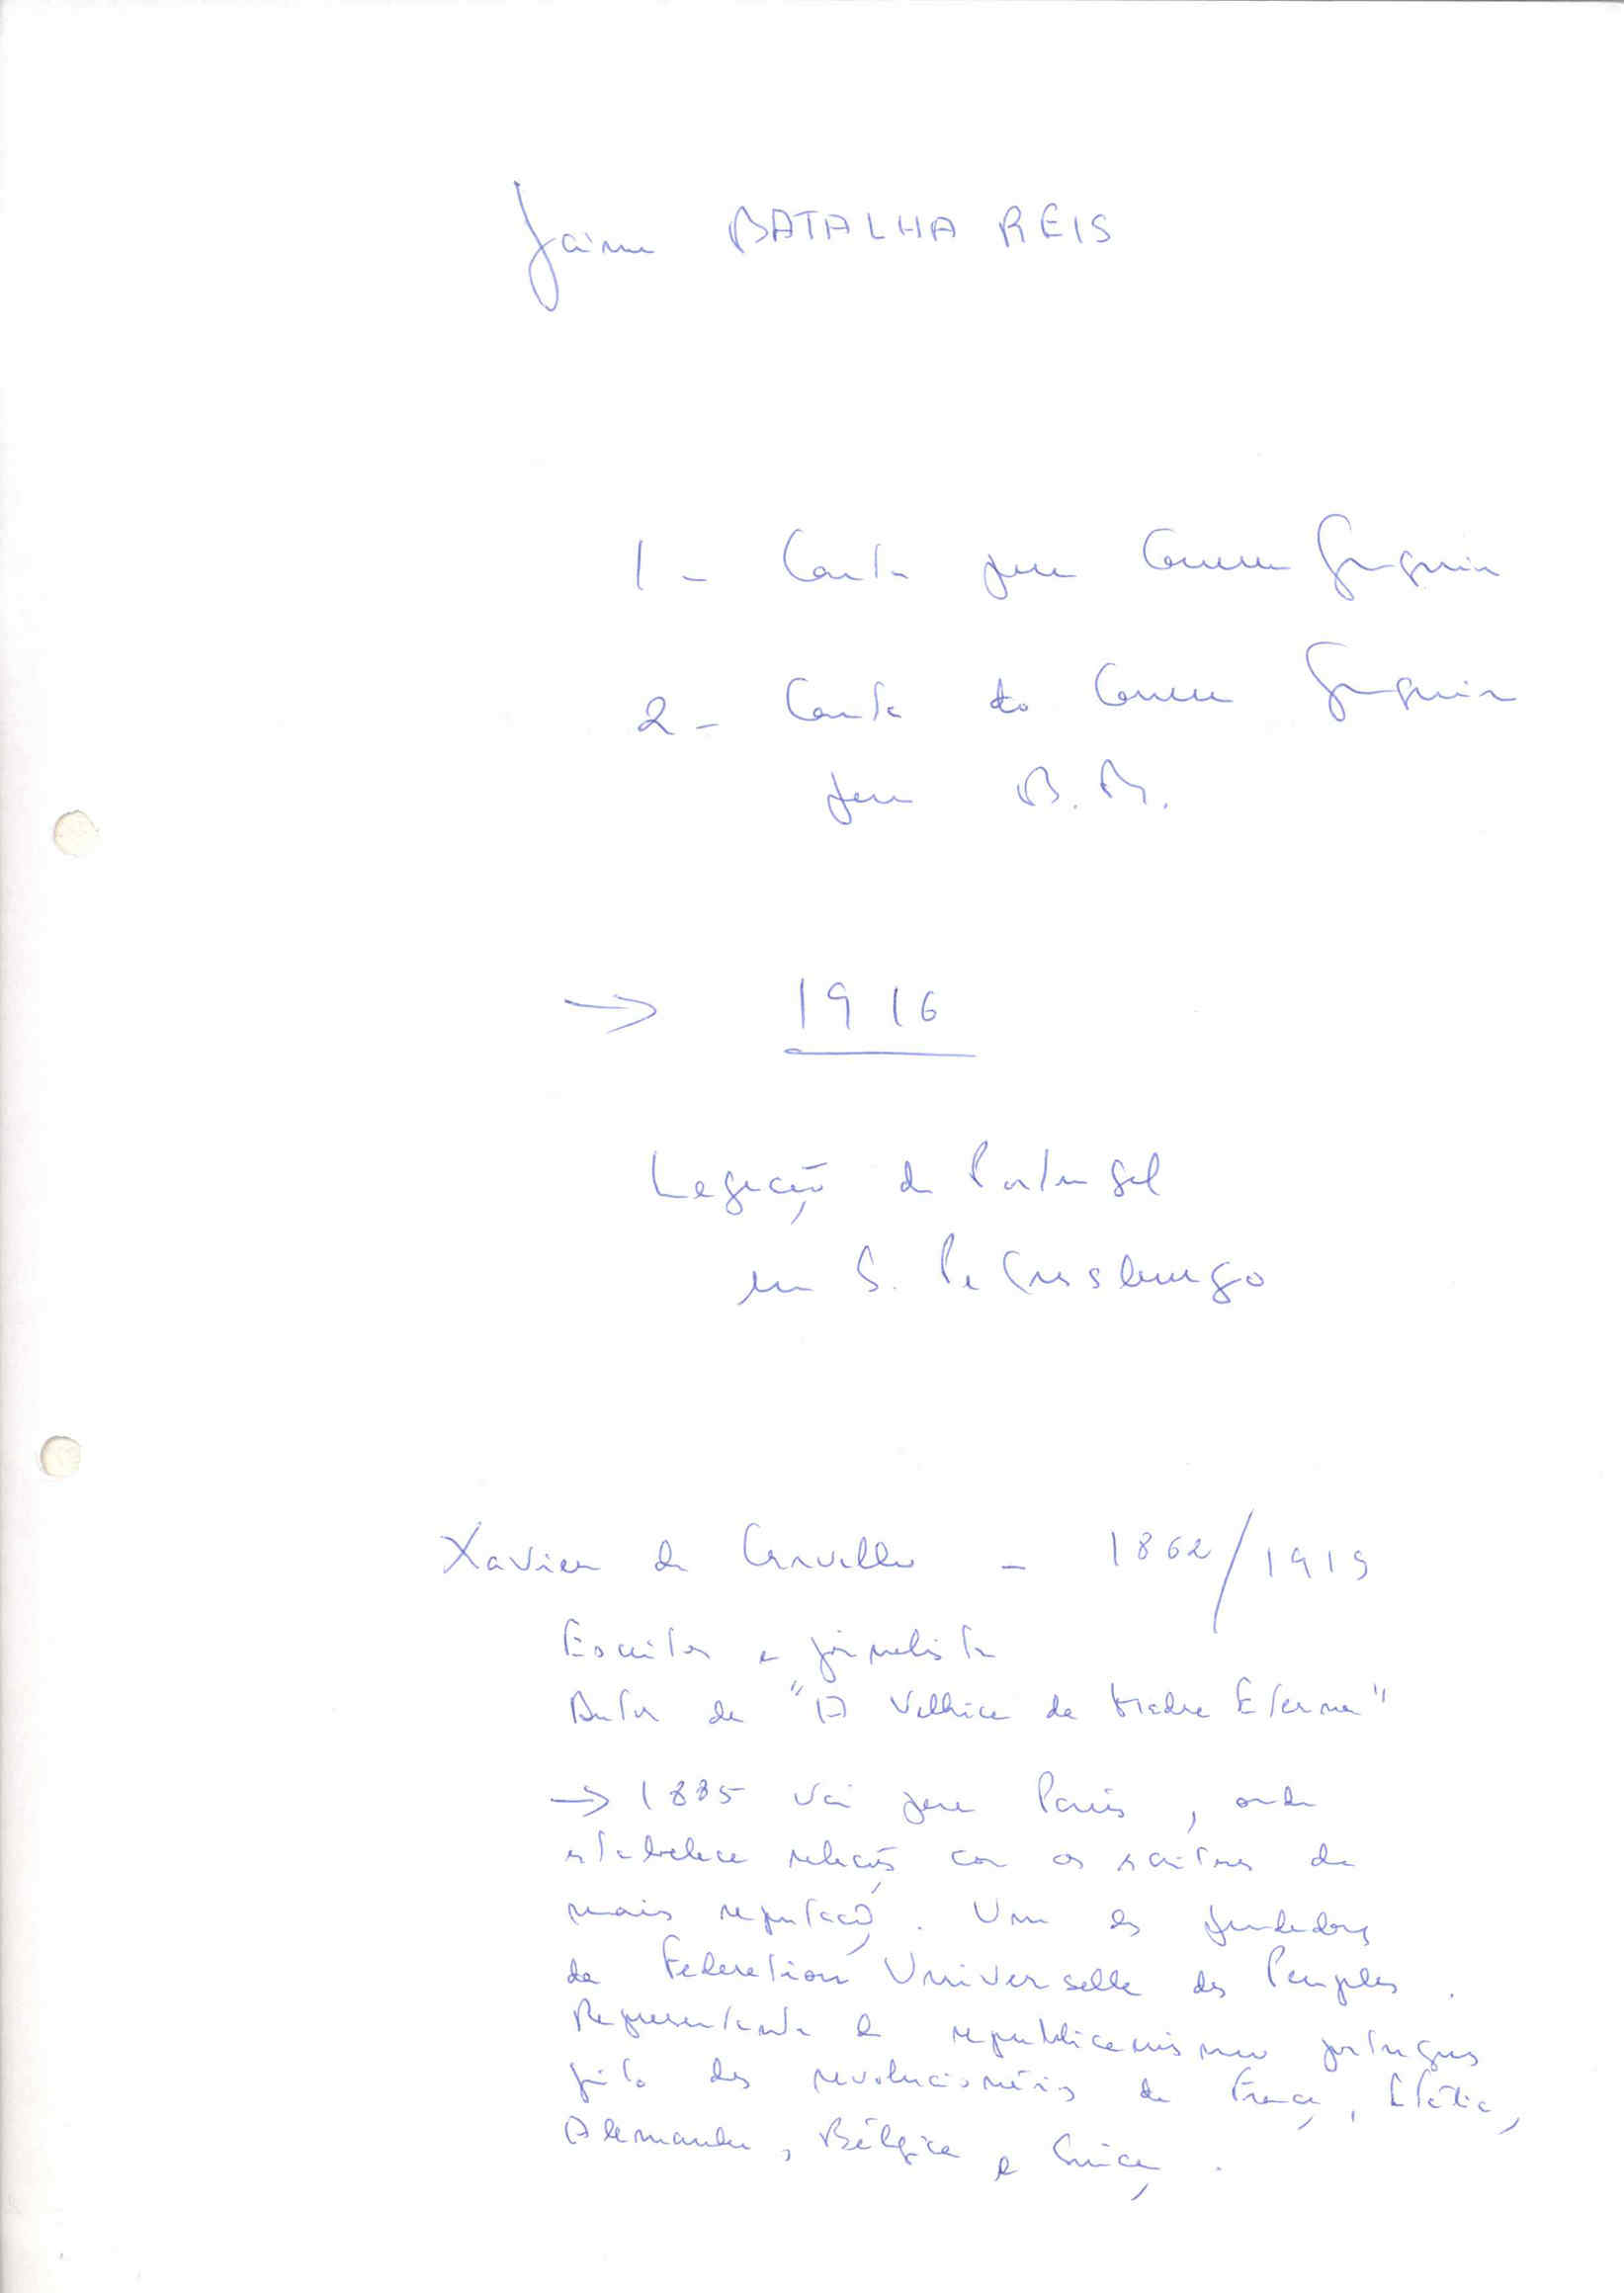 Jaime BATALHA REIS
1 - Carta para
2 - Carta do
para B. R.
→ 1916
Legação de Portugal
em S. Petersburgo
Xavier de Carvalho - 1862/1919
Escritor e jornalista
Autor de "A Velhice da Madre Eterna"
→ 1885 vai para Paris, onde
estabelece relações com os escritores de
mais reputação. Um dos fundadores
da Federation Universelle des Peuples.
Representante do republicanismo português
junto dos revolucionários de França, Itália,
Alemanha, Bélgica e Suiça.